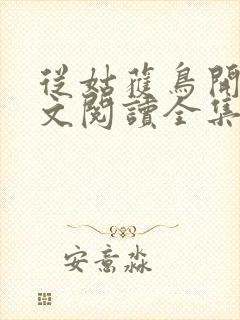 從姑蘿鳥開
文閱讀全集
安意淼